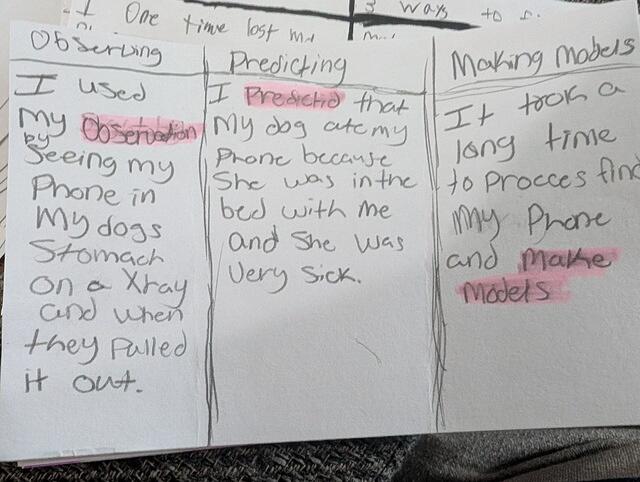 One time lost my
3 ways to
Observing
I used
My Observation
by
Seeing my
Phone in
My dogs
Stomach
on a Xray
and when
they Pulled
it out.
Predicting
I Predictid that
My dog ate my
Phone because
She was in the
bed with me
and She was
Very Sick.
Making Models
It took a
long time
to procces find
My Phone
and Make
Models